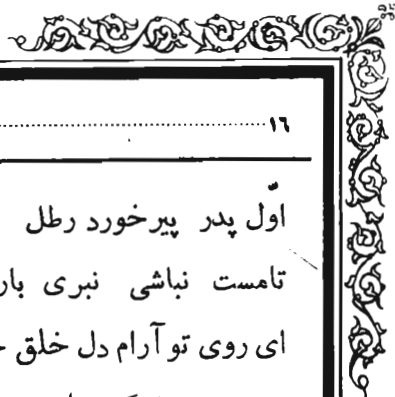 ۱۶
اوّل پدر پیر خورد رطل
تامست نباشی نبری بار
ای روی تو آرام دل خلق